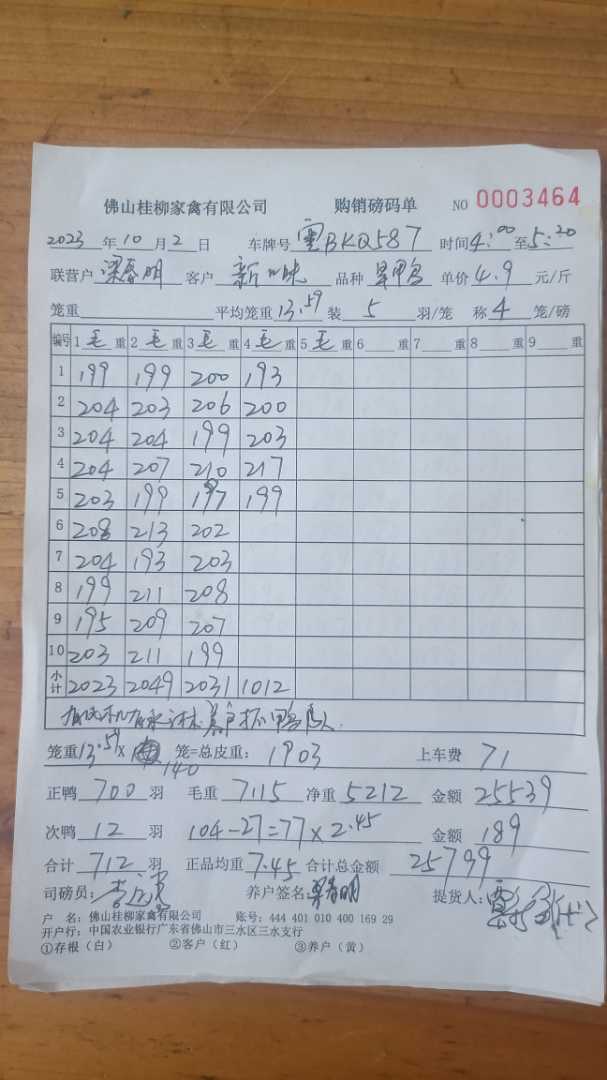 佛山桂柳家禽有限公司 购销磅码单 NO 0003464
2023年10月2日 车牌号 粤BKQ587 时间4:00至5:20
联营户 梁春明 客户 新味 品种 旱鸭 单价4.9元/斤
笼重 平均笼重13.59 装 5 羽/笼 称 4 笼/磅
编号 1毛重 2毛重 3毛重 4毛重 5毛重 6重 7重 8重 9重
1 199 199 200 193
2 204 203 206 200
3 204 204 199 203
4 204 207 210 217
5 203 199 197 199
6 208 213 202
7 204 193 203
8 199 211 208
9 195 209 207
10 203 211 199
小计 2023 2049 2031 1012
养户 鸭
笼重13.59× 140 笼=总皮重: 1903 上车费 71
正鸭 700 羽 毛重 7115 净重 5212 金额 25539
次鸭 12 羽 104-27=77×2.45 金额 189
合计 712 羽 正品均重 7.45 合计总金额 25799
司磅员: 养户签名: 梁春明 提货人:
户 名: 佛山桂柳家禽有限公司 账号: 444 401 010 400 169 29
开户行: 中国农业银行广东省佛山市三水区三水支行
①存根(白) ②客户(红) ③养户(黄)